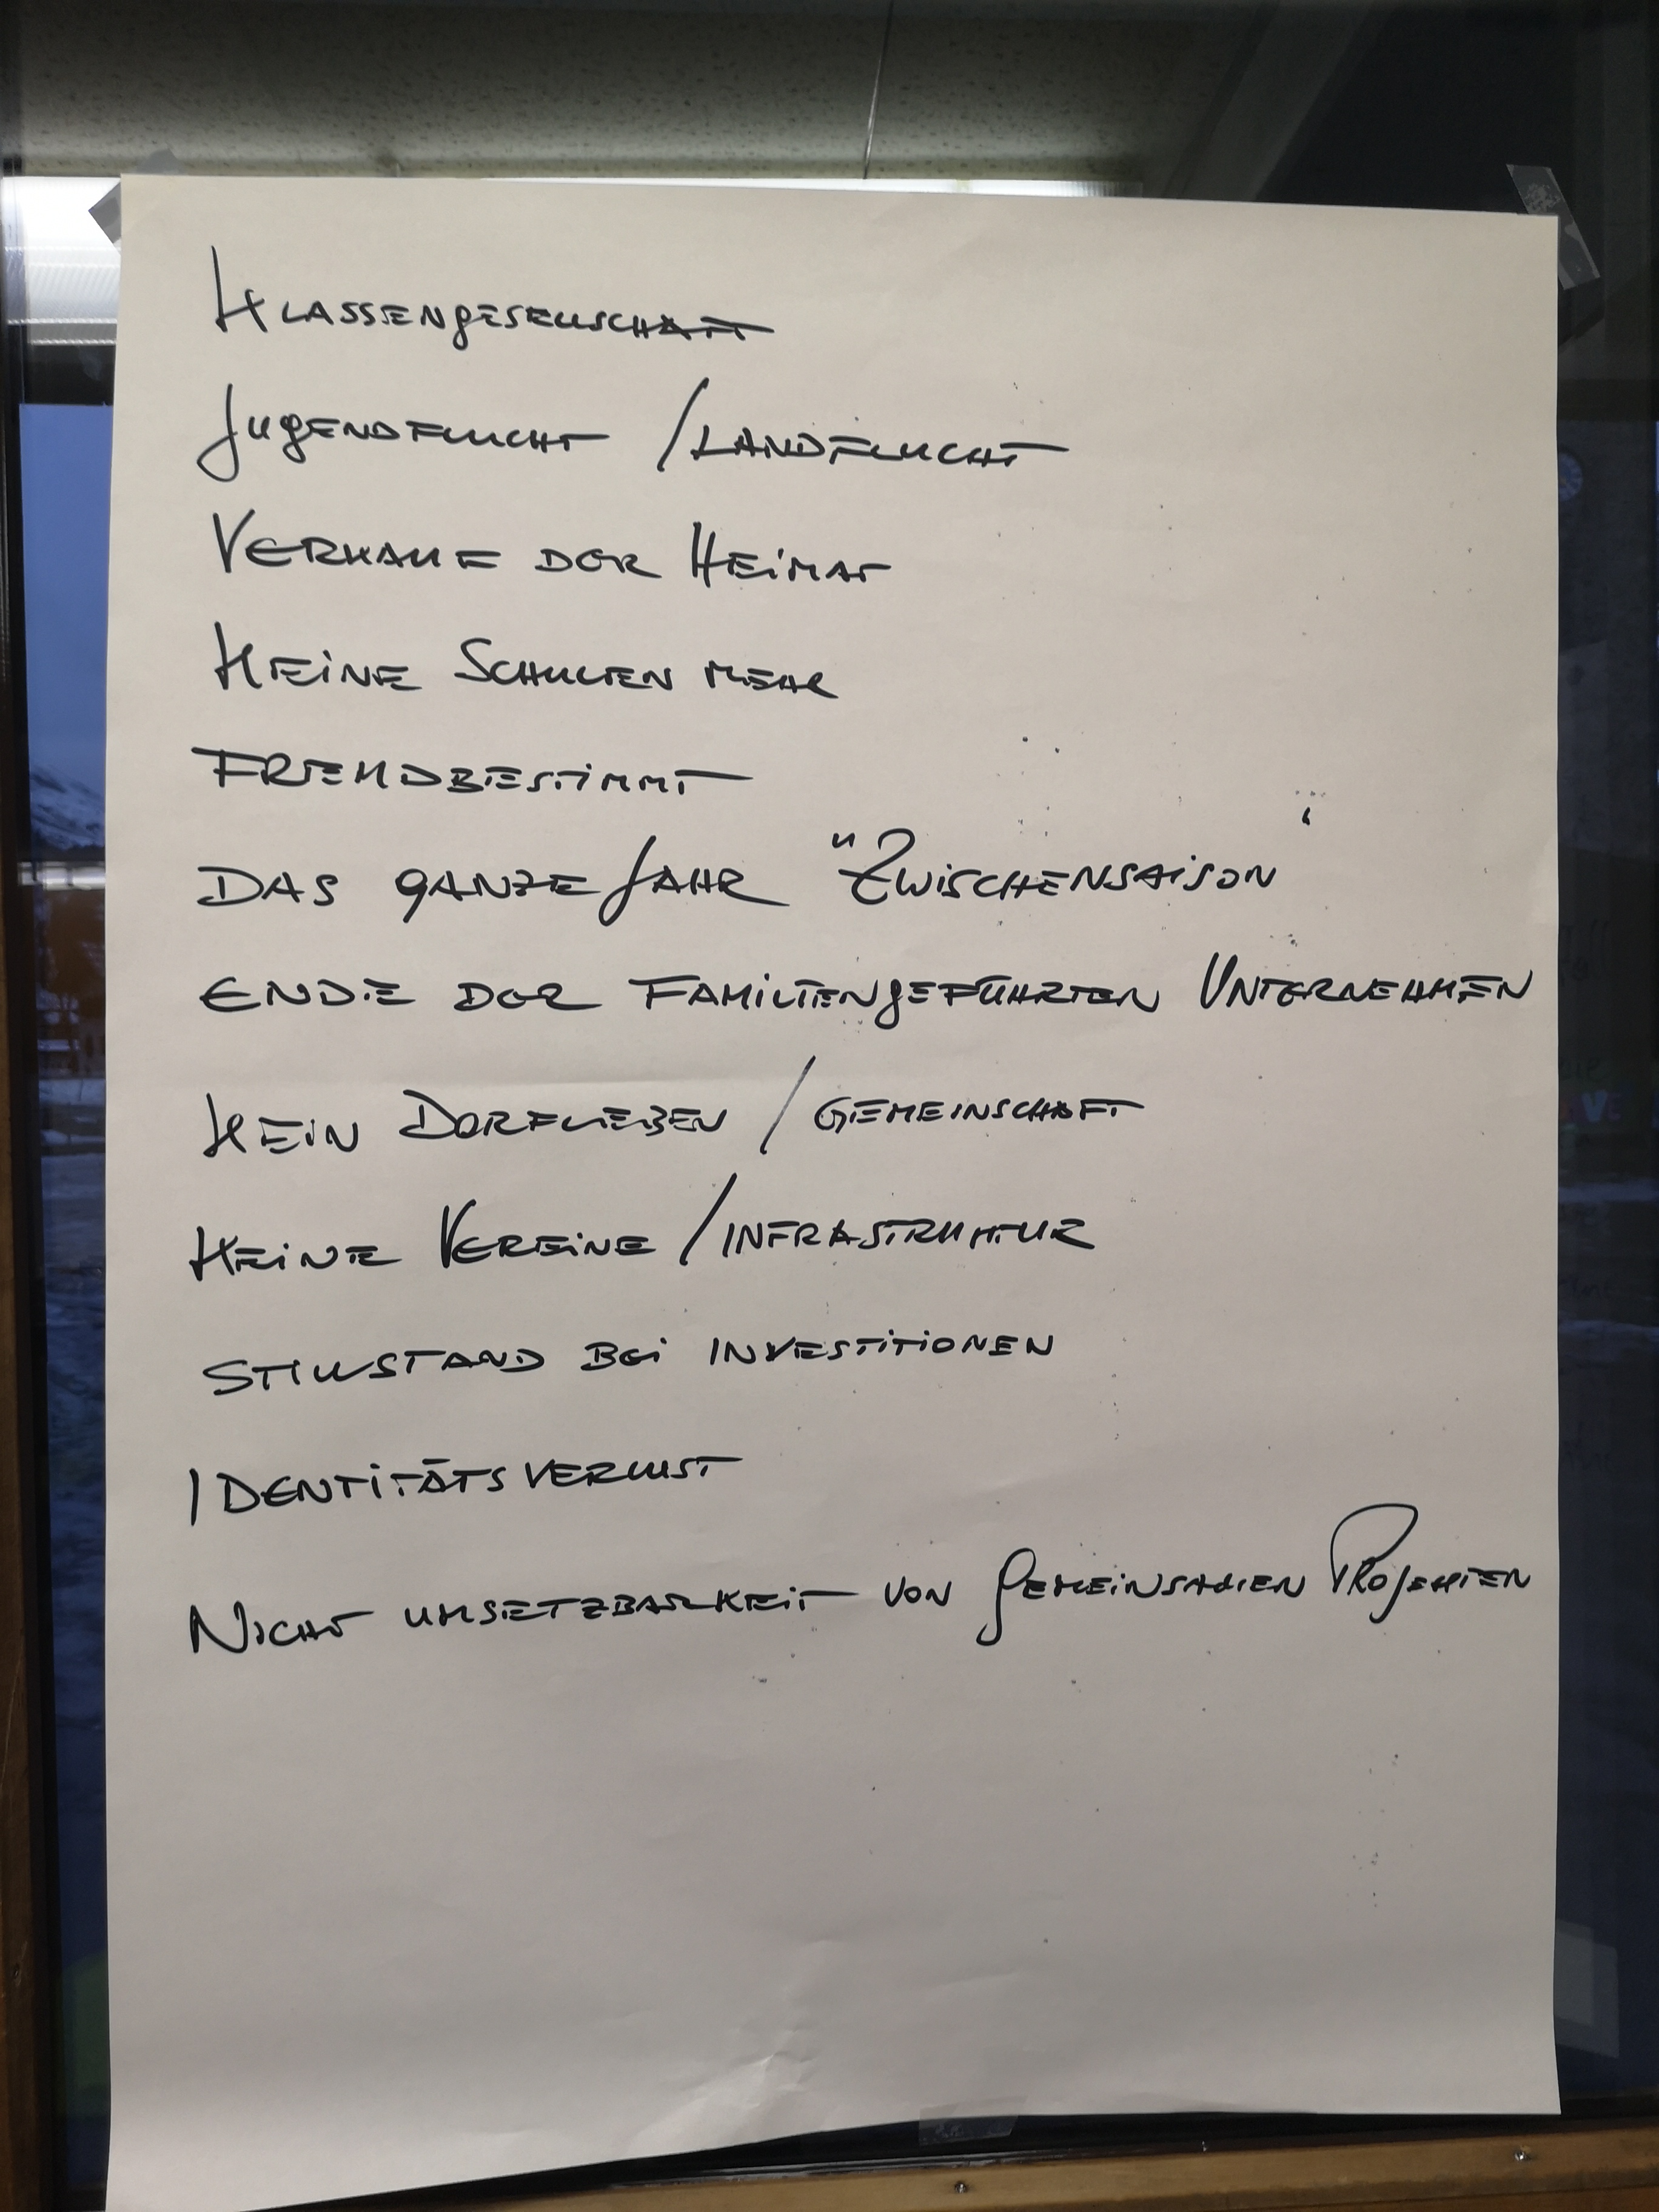 Klassengesellschaft
Jugendflucht / Landflucht
Verkauf der Heimat
Keine Schulen mehr
Fremdbestimmt
Das ganze Jahr "Zwischensaison'
Ende der familiengeführten Unternehmen
Kein Dorfleben / Gemeinschaft
Keine Vereine / Infrastruktur
Stillstand bei Investitionen
Identitätsverlust
Nicht umsetzbarkeit von gemeinsamen Projekten